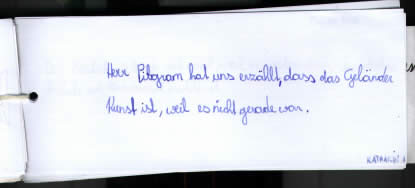 Herr Pilogram hat uns erzählt, dass das Geländer
Kunst ist, weil es nicht gerade war.